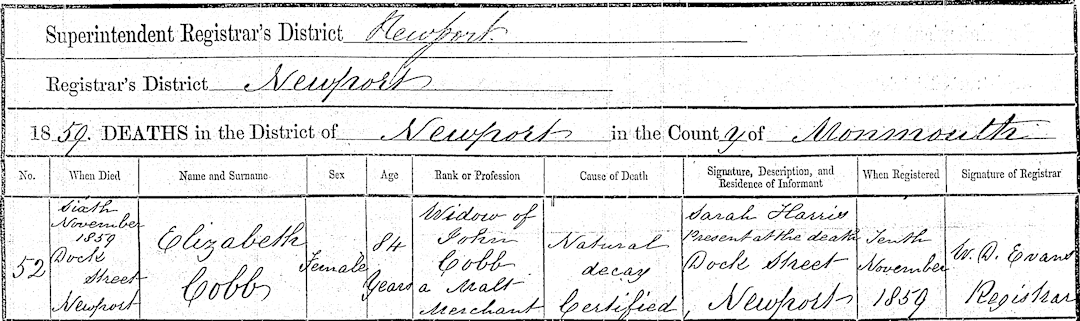 Superintendent Registrar's District Newport.
Registrar's District Newport
1859. DEATHS in the District of Newport in the County of Monmouth
No.
When Died
Name and Surname
Sex
Age
Rank or Profession
Cause of Death
Signature, Description, and
Residence of Informant
When Registered
Signature of Registrar
52
Sixth
November
1859
Dock
Street
Newport
Elizabeth
Cobb
Female
84
Years
Widow of
John
Cobb
a Malt
Merchant
Natural
decay
Certified
Sarah Harris
Present at the death
Dock Street
, Newport
Tenth
November
1859
W. D. Evans
Registrar